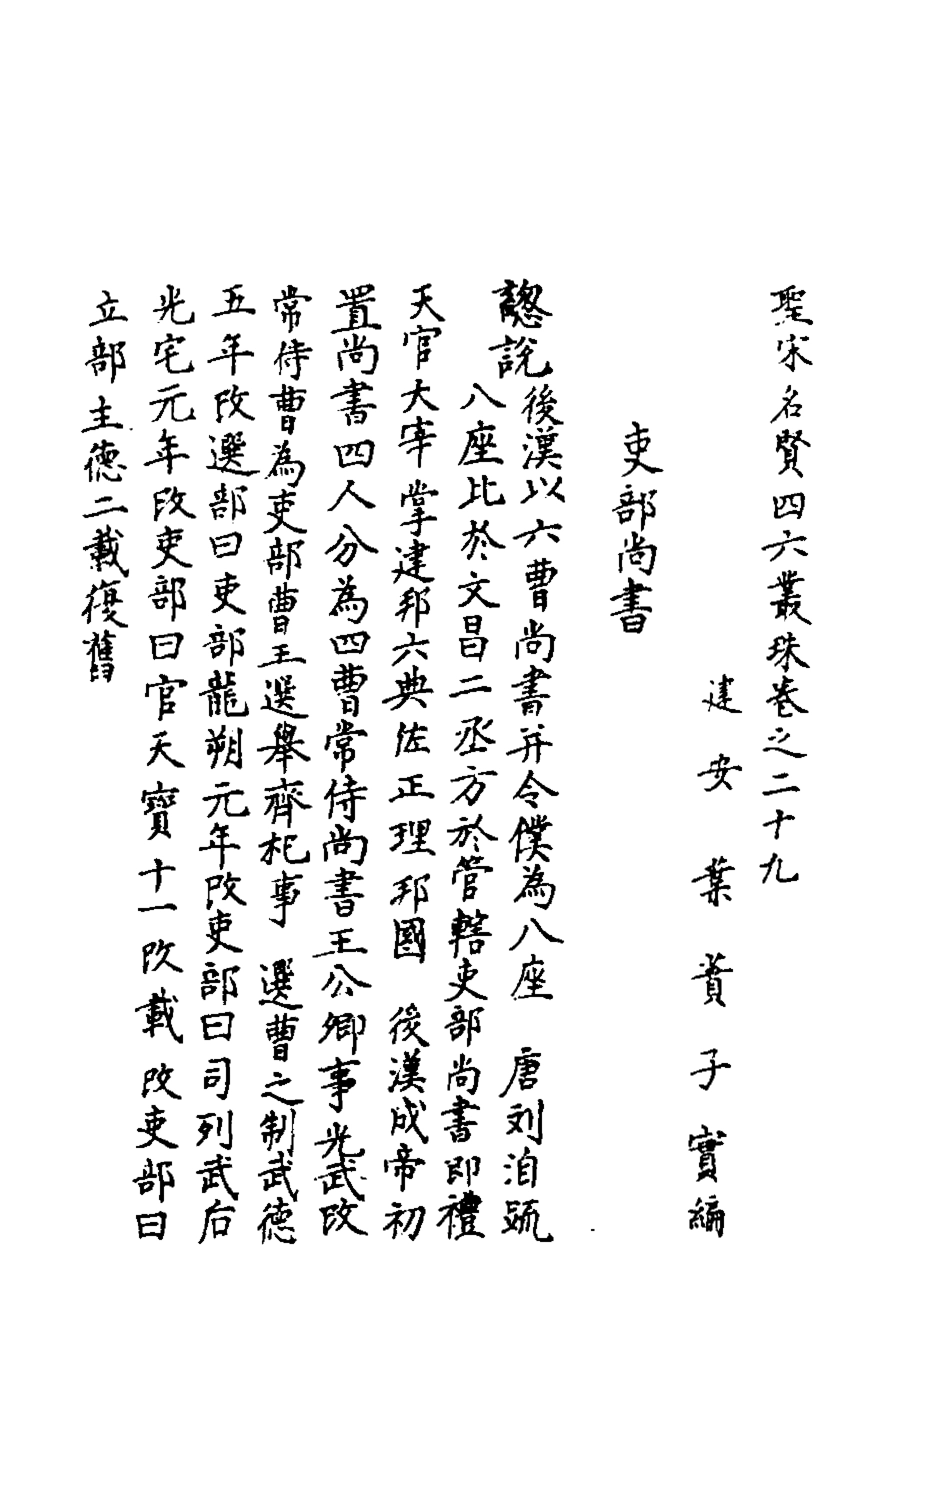 聖宋名賢四六叢珠卷之二十九
建安葉蕡子實編
吏部尚書
總說後漢以六曹尚書并令僕為八座　唐刘洎䟽
八座比於文昌二丞方於管轄吏部尚書即禮
天官大宰掌建邦六典佐正理邦國　後漢成帝初
置尚書四人分為四曹常侍尚書王公卿事光武改
常侍曹為吏部曹王選舉齊杞事　選曹之制武德
五年改選部曰吏部龍朔元年改吏部曰司列武后
光宅元年改吏部曰官天寶十一改載改吏部曰
立部主德二載復舊